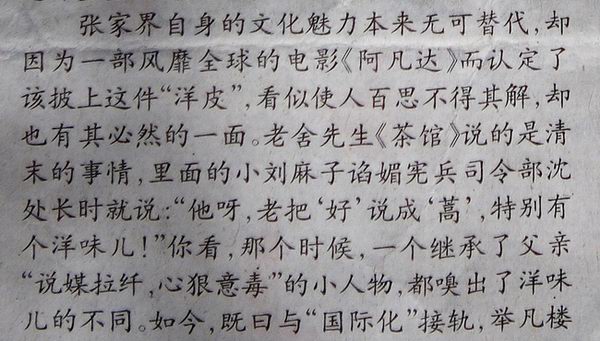 张家界自身的文化魅力本来无可替代,却
因为一部风靡全球的电影《阿凡达》而认定了
该披上这件“洋皮”,看似使人百思不得其解,却
也有其必然的一面。老舍先生《茶馆》说的是清
末的事情,里面的小刘麻子谄媚宪兵司令部沈
处长时就说:“他呀,老把‘好’说成‘蒿’,特别有
个洋味儿!”你看,那个时候,一个继承了父亲
“说媒拉纤,心狠意毒”的小人物,都嗅出了洋味
儿的不同。如今,既曰与“国际化”接轨,举凡楼